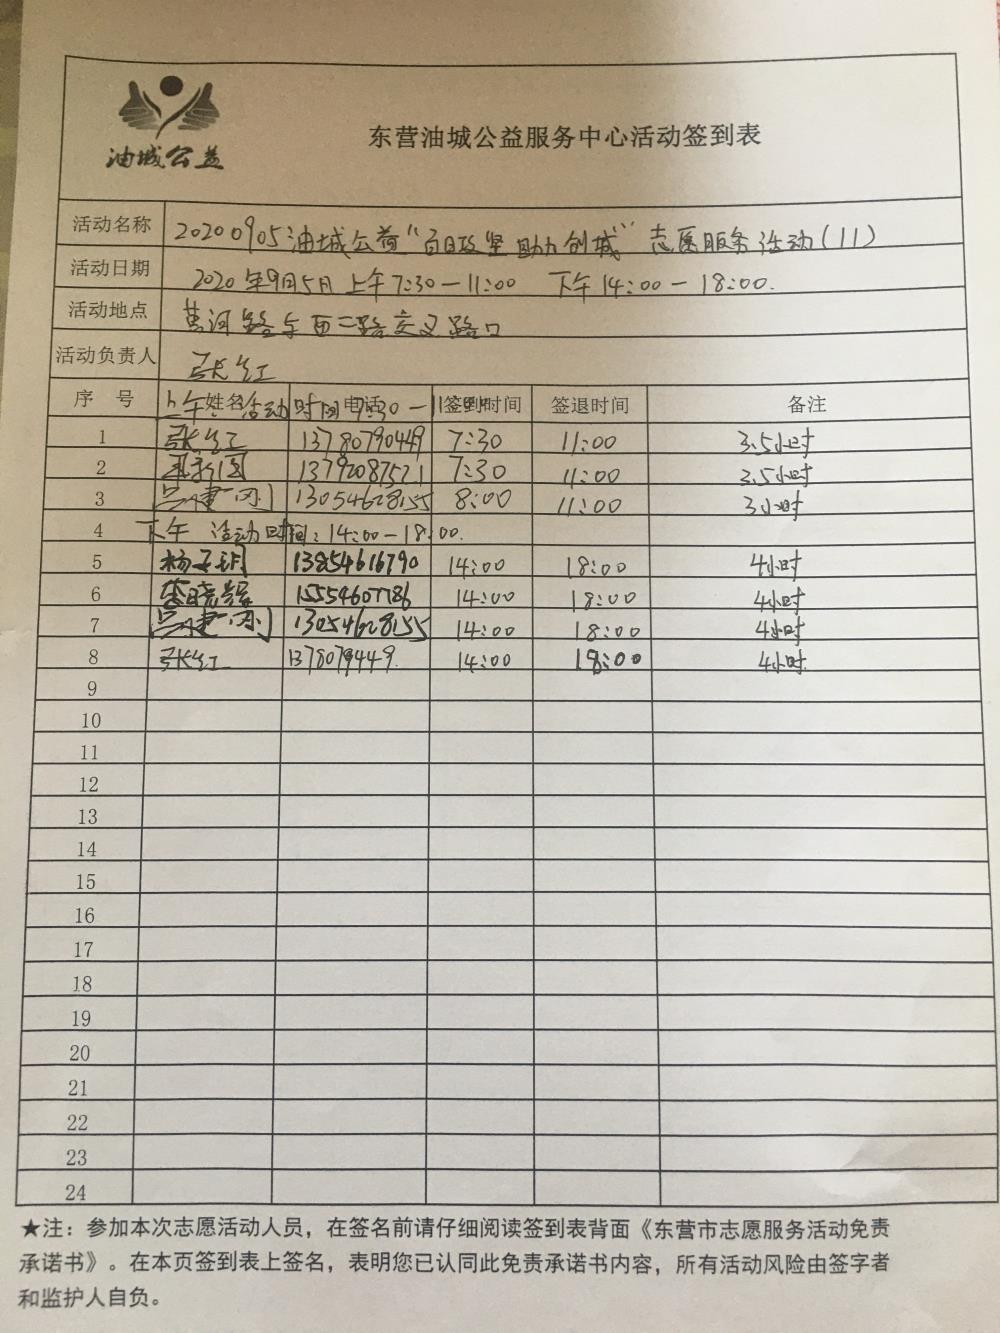 油城公益
东营油城公益服务中心活动签到表
活动名称 20200905油城公益“百日攻坚 助力创城”志愿服务活动(11)
活动日期 2020年9月5日上午7:30—11:00 下午14:00—18:00.
活动地点 黄河路与西二路交叉路口
活动负责人 张红
序 号 姓名 电话 签到时间 签退时间 备注
上午:活动时间7:30—11:00
1 张红 13780790449 7:30 11:00 3.5小时
2 13792087521 7:30 11:00 3.5小时
3 13054628155 8:00 11:00 3小时
4 下午 活动时间:14:00—18:00.
5 13854616790 14:00 18:00 4小时
6 李晓辉 15554607786 14:00 18:00 4小时
7 13054628155 14:00 18:00 4小时
8 张红 1378079449. 14:00 18:00 4小时
9
10
11
12
13
14
15
16
17
18
19
20
21
22
23
24
★注：参加本次志愿活动人员，在签名前请仔细阅读签到表背面《东营市志愿服务活动免责
承诺书》。在本页签到表上签名，表明您已认同此免责承诺书内容，所有活动风险由签字者
和监护人自负。